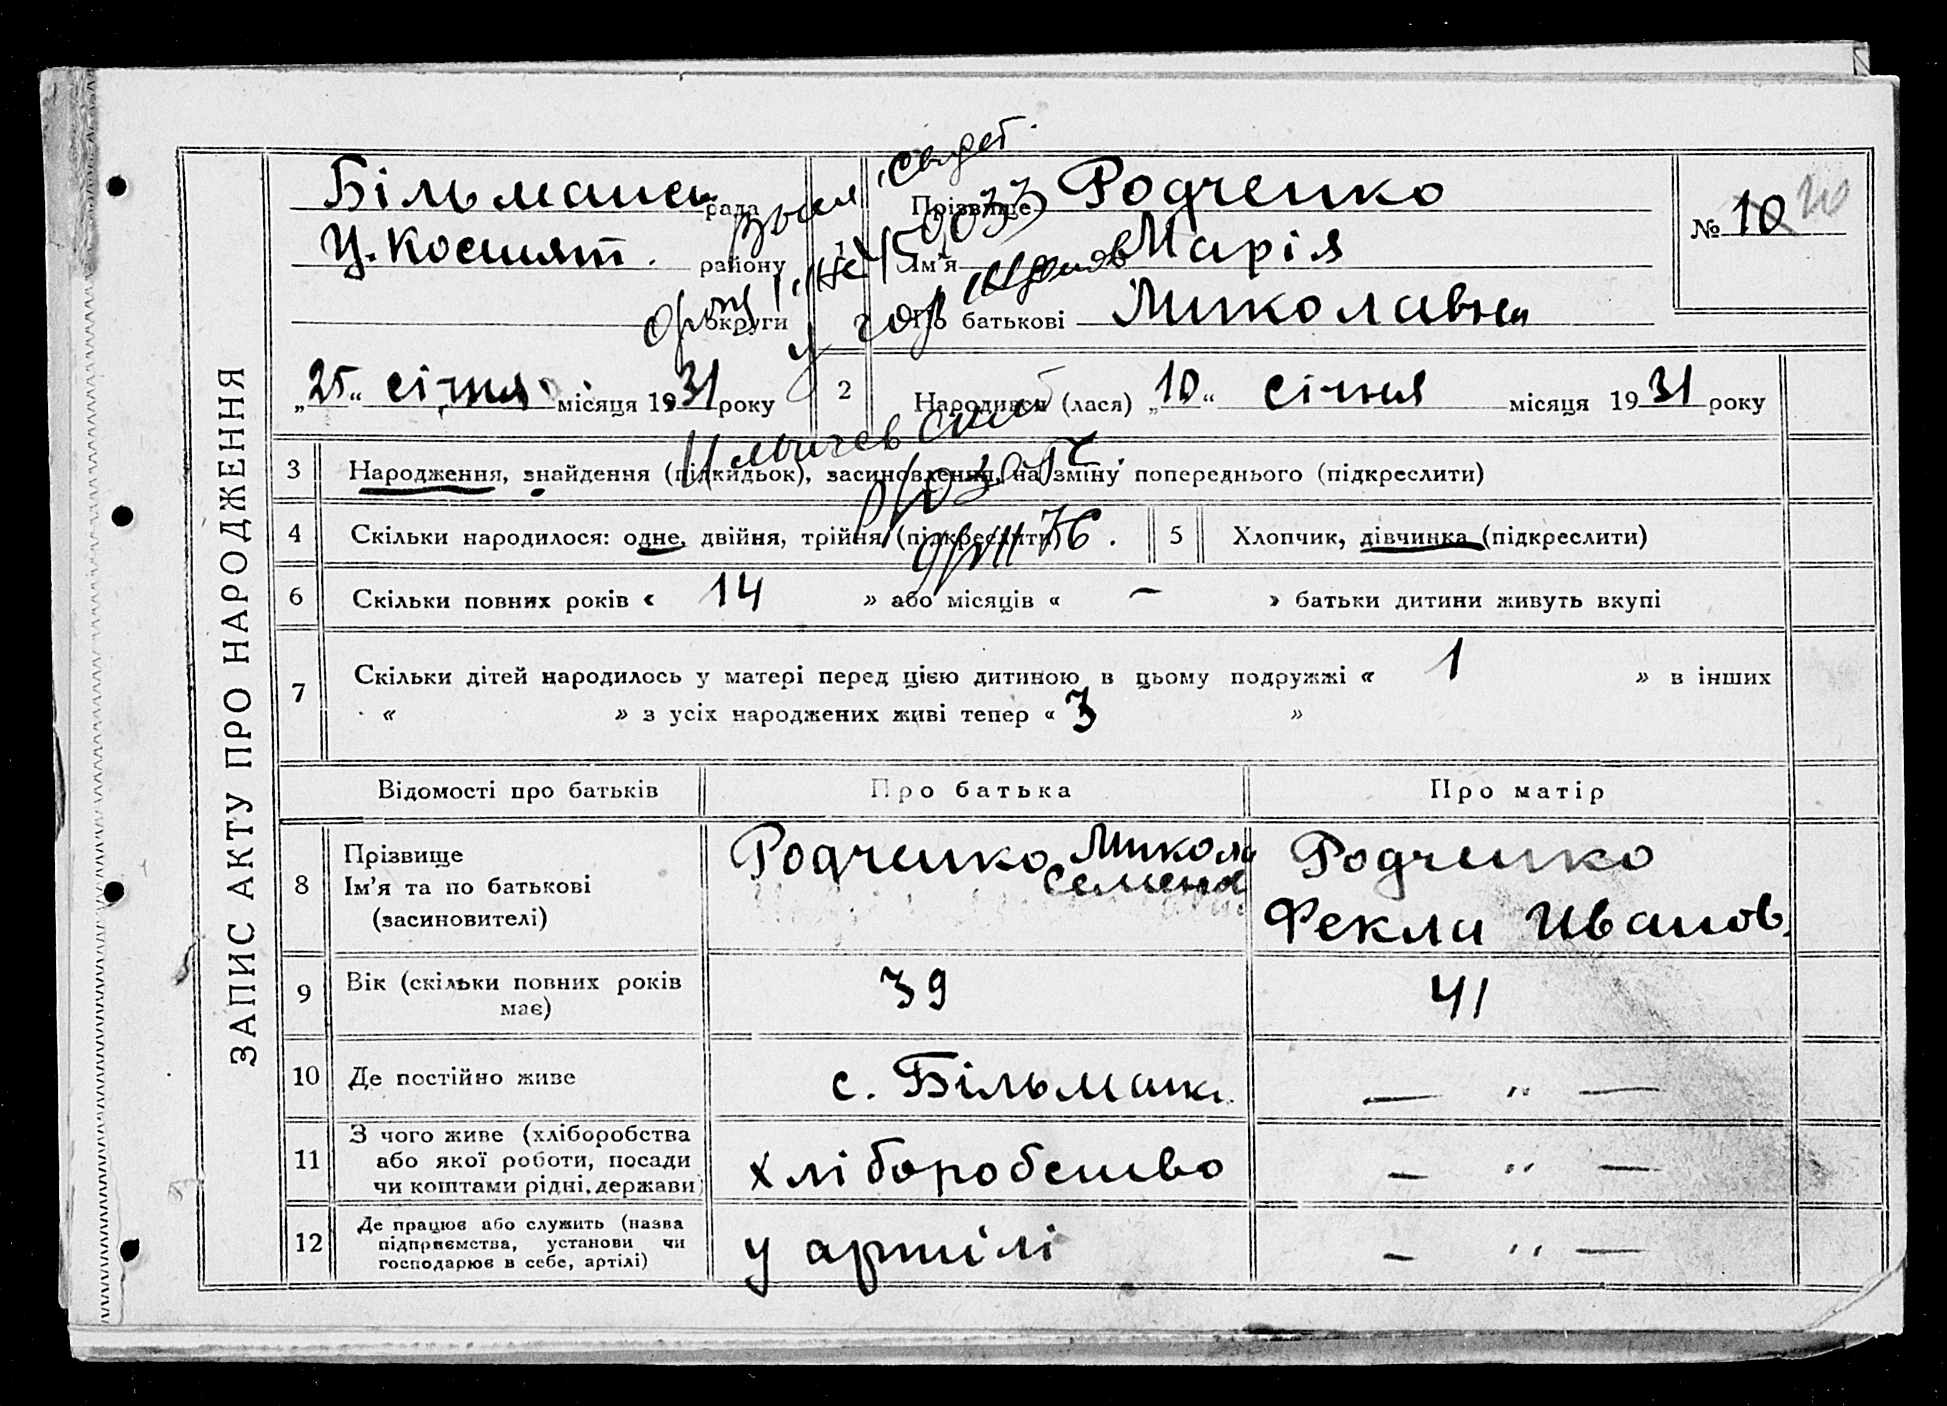 ЗАПИС АКТУ ПРО НАРОДЖЕННЯ
рада
Ц. района
округи
„25“ січня місяця 1931 року
1 Прізвище Родченко
Ім'я Марія
По батькові Миколавна
№ 10 20
2 Народився (лася) „10“ січня місяця 1931 року
3 Народження, знайдення (підкидьок), засиновлення, на зміну попереднього (підкреслити)
4 Скільки народилося: одне, двійня, трійня (підкреслити)
5 Хлопчик, дівчинка (підкреслити)
6 Скільки повних років « 14 » або місяців « – » батьки дитини живуть вкупі
7 Скільки дітей народилось у матері перед цією дитиною в цьому подружжі « 1 » в інших
« » з усіх народжених живі тепер « 3 »
Відомості про батьків Про батька Про матір
8 Прізвище
Ім'я та по батькові
(засиновителі)
Родченко Микола
Семенов
Родченко
Фекли Иванов.
9 Вік (скільки повних років
має)
39
41
10 Де постійно живе
с. Більмак.
— „ —
11 З чого живе (хліборобства
або якої роботи, посади
чи коштами рідні, держави)
хліборобство
— „ —
12 Де працює або служить (назва
підприємства, установи чи
господарює в себе, артілі)
у артілі
— „ —